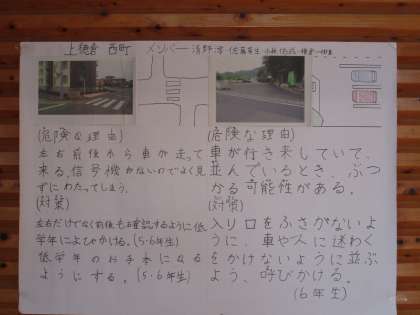 上穂倉 西町 メンバー
(危険な理由)
左右前後から車が走って
来る。信号機がないのでよく見
ずにわたってしまう。
(対策)
左右だけでなく前後も確認するように低
学年によびかける。(5・6年生)
低学年のお手本になる
ようにする。(5・6年生)
(危険な理由)
車が行き来していて、
並んでいるとき、ぶつ
かる可能性がある。
(対策)
入り口をふさがないよ
うに、車や人に迷わく
をかけないように並ぶ
よう、呼びかける。
(6年生)